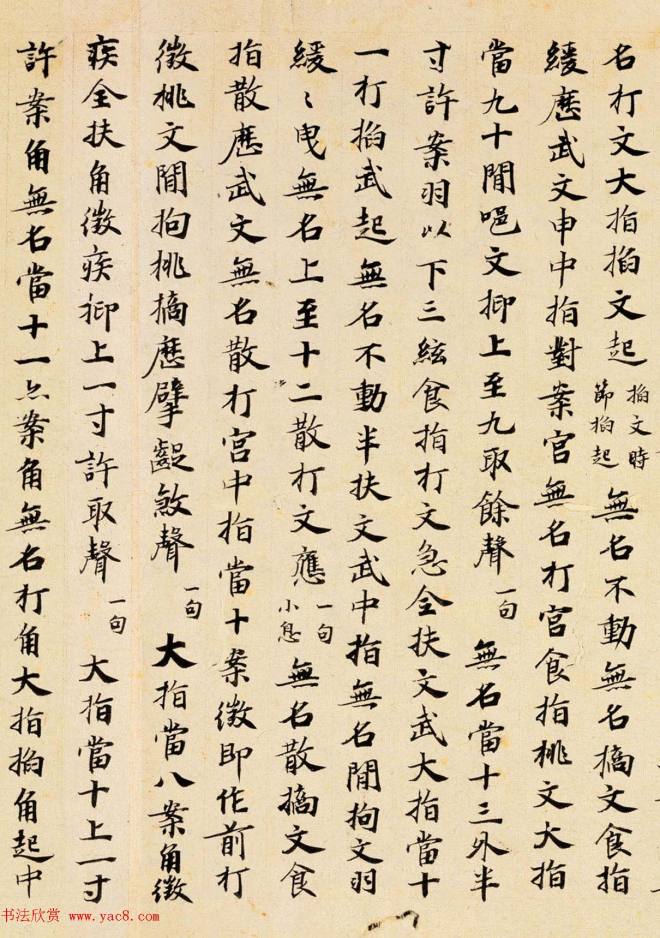 名打文大指搯文起搯文時節搯起無名不動無名擿文食指
緩歷武文申中指對案宮無名打宮食指桃文大指
當九十間文抑上至九取餘聲一句無名當十三外半
寸許案羽以下三絃食指打文急全扶文武大指當十
一打搯武起無名不動半扶文武中指無名間拘文羽
緩〻曳無名上至十二散打文應一句小息無名散擿文食
指散歷武文無名散打宮中指當十案徵即作前打
徵桃文間拘桃擿歷擘齪斂聲一句大指當八案角徵
疾全扶角徵疾抑上一寸許取聲一句大指當十上一寸
許案角無名當十一亦案角無名打角大指搯角起中
书法欣赏 www.yac8.com